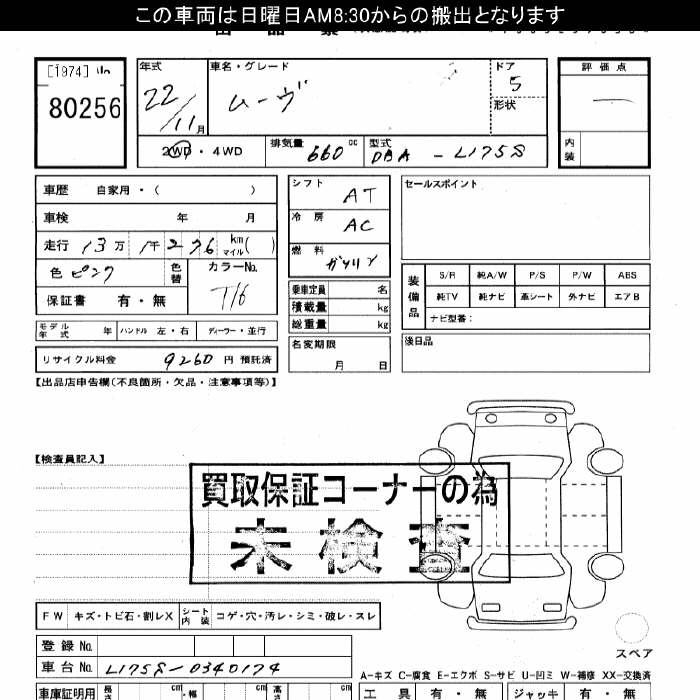 この車両は日曜日AM8:30からの搬出となります
[1974]
80256
年式
22/11月
車名・グレード
ムーヴ
ドア
5
形状
評価点
内装
2WD・4WD
排気量 660 cc
型式 DBA - L175S
車歴 自家用・( )
車検 年 月
走行 13万 1千 276 km マイル ( )
色 ピンク
色替
カラーNo.
T16
保証書 有・無
モデル年式 年
ハンドル 左・右
ディーラー・並行
リサイクル料金 9260 円 預託済
シフト AT
冷房 AC
燃料 ガソリン
乗車定員 名
積載量 kg
総重量 kg
名変期限
月 日
セールスポイント
装備品
S/R 純A/W P/S P/W ABS
純TV 純ナビ 革シート 外ナビ エアB
ナビ型番:
後日品
【出品店申告欄(不良箇所・欠品・注意事項等)】
【検査員記入】
買取保証コーナーの為
未検査
FW キズ・トビ石・割レX
シート内装 コゲ・穴・汚レ・シミ・破レ・スレ
スペア
登録No.
車台No. L175S-0340174
A-キズ C-腐食 E-エクボ S-サビ U-凹ミ W-補修 XX-交換済
車庫証明用 長さ cm ・幅 cm 高さ cm
工具 有・無
ジャッキ 有・無